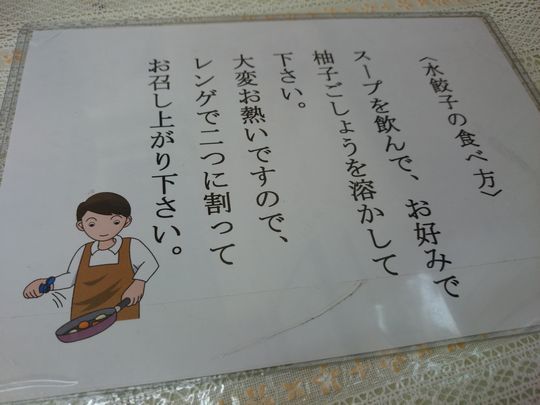 〈水餃子の食べ方〉
スープを飲んで、お好みで
柚子ごしょうを溶かして
下さい。
大変お熱いですので、
レンゲで二つに割って
お召し上がり下さい。